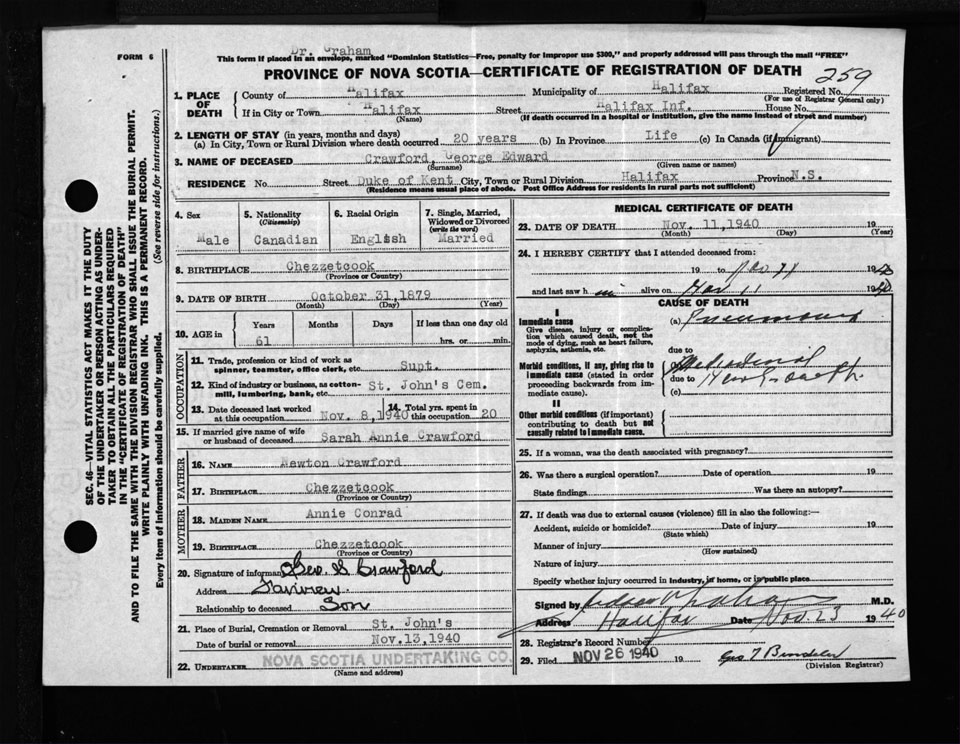 Dr. Graham
FORM 6
This form if placed in an envelope, marked "Dominion Statistics—Free, penalty for improper use $300," and properly addressed will pass through the mail "FREE"
PROVINCE OF NOVA SCOTIA—CERTIFICATE OF REGISTRATION OF DEATH
259
1. PLACE OF DEATH
County of Halifax Municipality of Halifax Registered No.
(For use of Registrar General only)
If in City or Town Halifax Street Halifax Inf. House No.
(Name) (If death occurred in a hospital or institution, give the name instead of street and number)
2. LENGTH OF STAY (in years, months and days)
(a) In City, Town or Rural Division where death occurred 20 years (b) In Province Life (c) In Canada (if immigrant)
3. NAME OF DECEASED Crawford, George Edward
(Surname) (Given name or names)
RESIDENCE No. Street Duke of Kent City, Town or Rural Division Halifax Province N.S.
(Residence means usual place of abode. Post Office Address for residents in rural parts not sufficient)
SEC. 46—VITAL STATISTICS ACT MAKES IT THE DUTY
OF THE UNDERTAKER OR PERSON ACTING AS UNDER-
TAKER TO OBTAIN ALL THE PARTICULARS REQUIRED
IN THE "CERTIFICATE OF REGISTRATION OF DEATH"
AND TO FILE THE SAME WITH THE DIVISION REGISTRAR WHO SHALL ISSUE THE BURIAL PERMIT.
WRITE PLAINLY WITH UNFADING INK. THIS IS A PERMANENT RECORD.
Every item of information should be carefully supplied. (See reverse side for instructions.)
4. Sex
Male
5. Nationality
(Citizenship)
Canadian
6. Racial Origin
English
7. Single, Married,
Widowed or Divorced
(write the word)
Married
8. BIRTHPLACE Chezzetcook
(Province or Country)
9. DATE OF BIRTH October 31,1879
(Month) (Day) (Year)
10. AGE in Years Months Days If less than one day old
61 hrs. or min.
OCCUPATION
11. Trade, profession or kind of work as
spinner, teamster, office clerk, etc. Supt.
12. Kind of industry or business, as cotton-
mill, lumbering, bank, etc. St. John's Cem.
13. Date deceased last worked
at this occupation Nov. 8,1940
14. Total yrs. spent in
this occupation 20
15. If married give name of wife
or husband of deceased Sarah Annie Crawford
FATHER
16. NAME Newton Crawford
17. BIRTHPLACE Chezzetcook
(Province or Country)
MOTHER
18. MAIDEN NAME Annie Conrad
19. BIRTHPLACE Chezzetcook
(Province or Country)
20. Signature of informant Geo. S Crawford
Address Fairview
Relationship to deceased Son
21. Place of Burial, Cremation or Removal St. John's
Date of burial or removal Nov.13,1940
22. UNDERTAKER NOVA SCOTIA UNDERTAKING CO.
(Name and address)
MEDICAL CERTIFICATE OF DEATH
23. DATE OF DEATH Nov. 11,1940 19
(Month) (Day) (Year)
24. I HEREBY CERTIFY that I attended deceased from:
19 to Nov 11 1940
and last saw h im alive on Nov 11 1940
CAUSE OF DEATH
I
Immediate cause
Give disease, injury or complica-
tion which caused death, not the
mode of dying, such as heart failure,
asphyxia, asthenia, etc.
(a) Pneumonia
due to
Morbid conditions, if any, giving rise to
immediate cause (stated in order
proceeding backwards from im-
mediate cause).
Mediastinal
due to New Growth
(c)
II
Other morbid conditions (if important)
contributing to death but not
causally related to immediate cause.
25. If a woman, was the death associated with pregnancy?
26. Was there a surgical operation? Date of operation 19
State findings Was there an autopsy?
27. If death was due to external causes (violence) fill in also the following:—
Accident, suicide or homicide? Date of injury 19
(State which)
Manner of injury
(How sustained)
Nature of injury
Specify whether injury occurred in industry, in home, or in public place
Signed by Graham M.D.
Address Halifax Date Nov. 23 1940
28. Registrar's Record Number
29. Filed NOV 26 1940 19 Geo T
(Division Registrar)